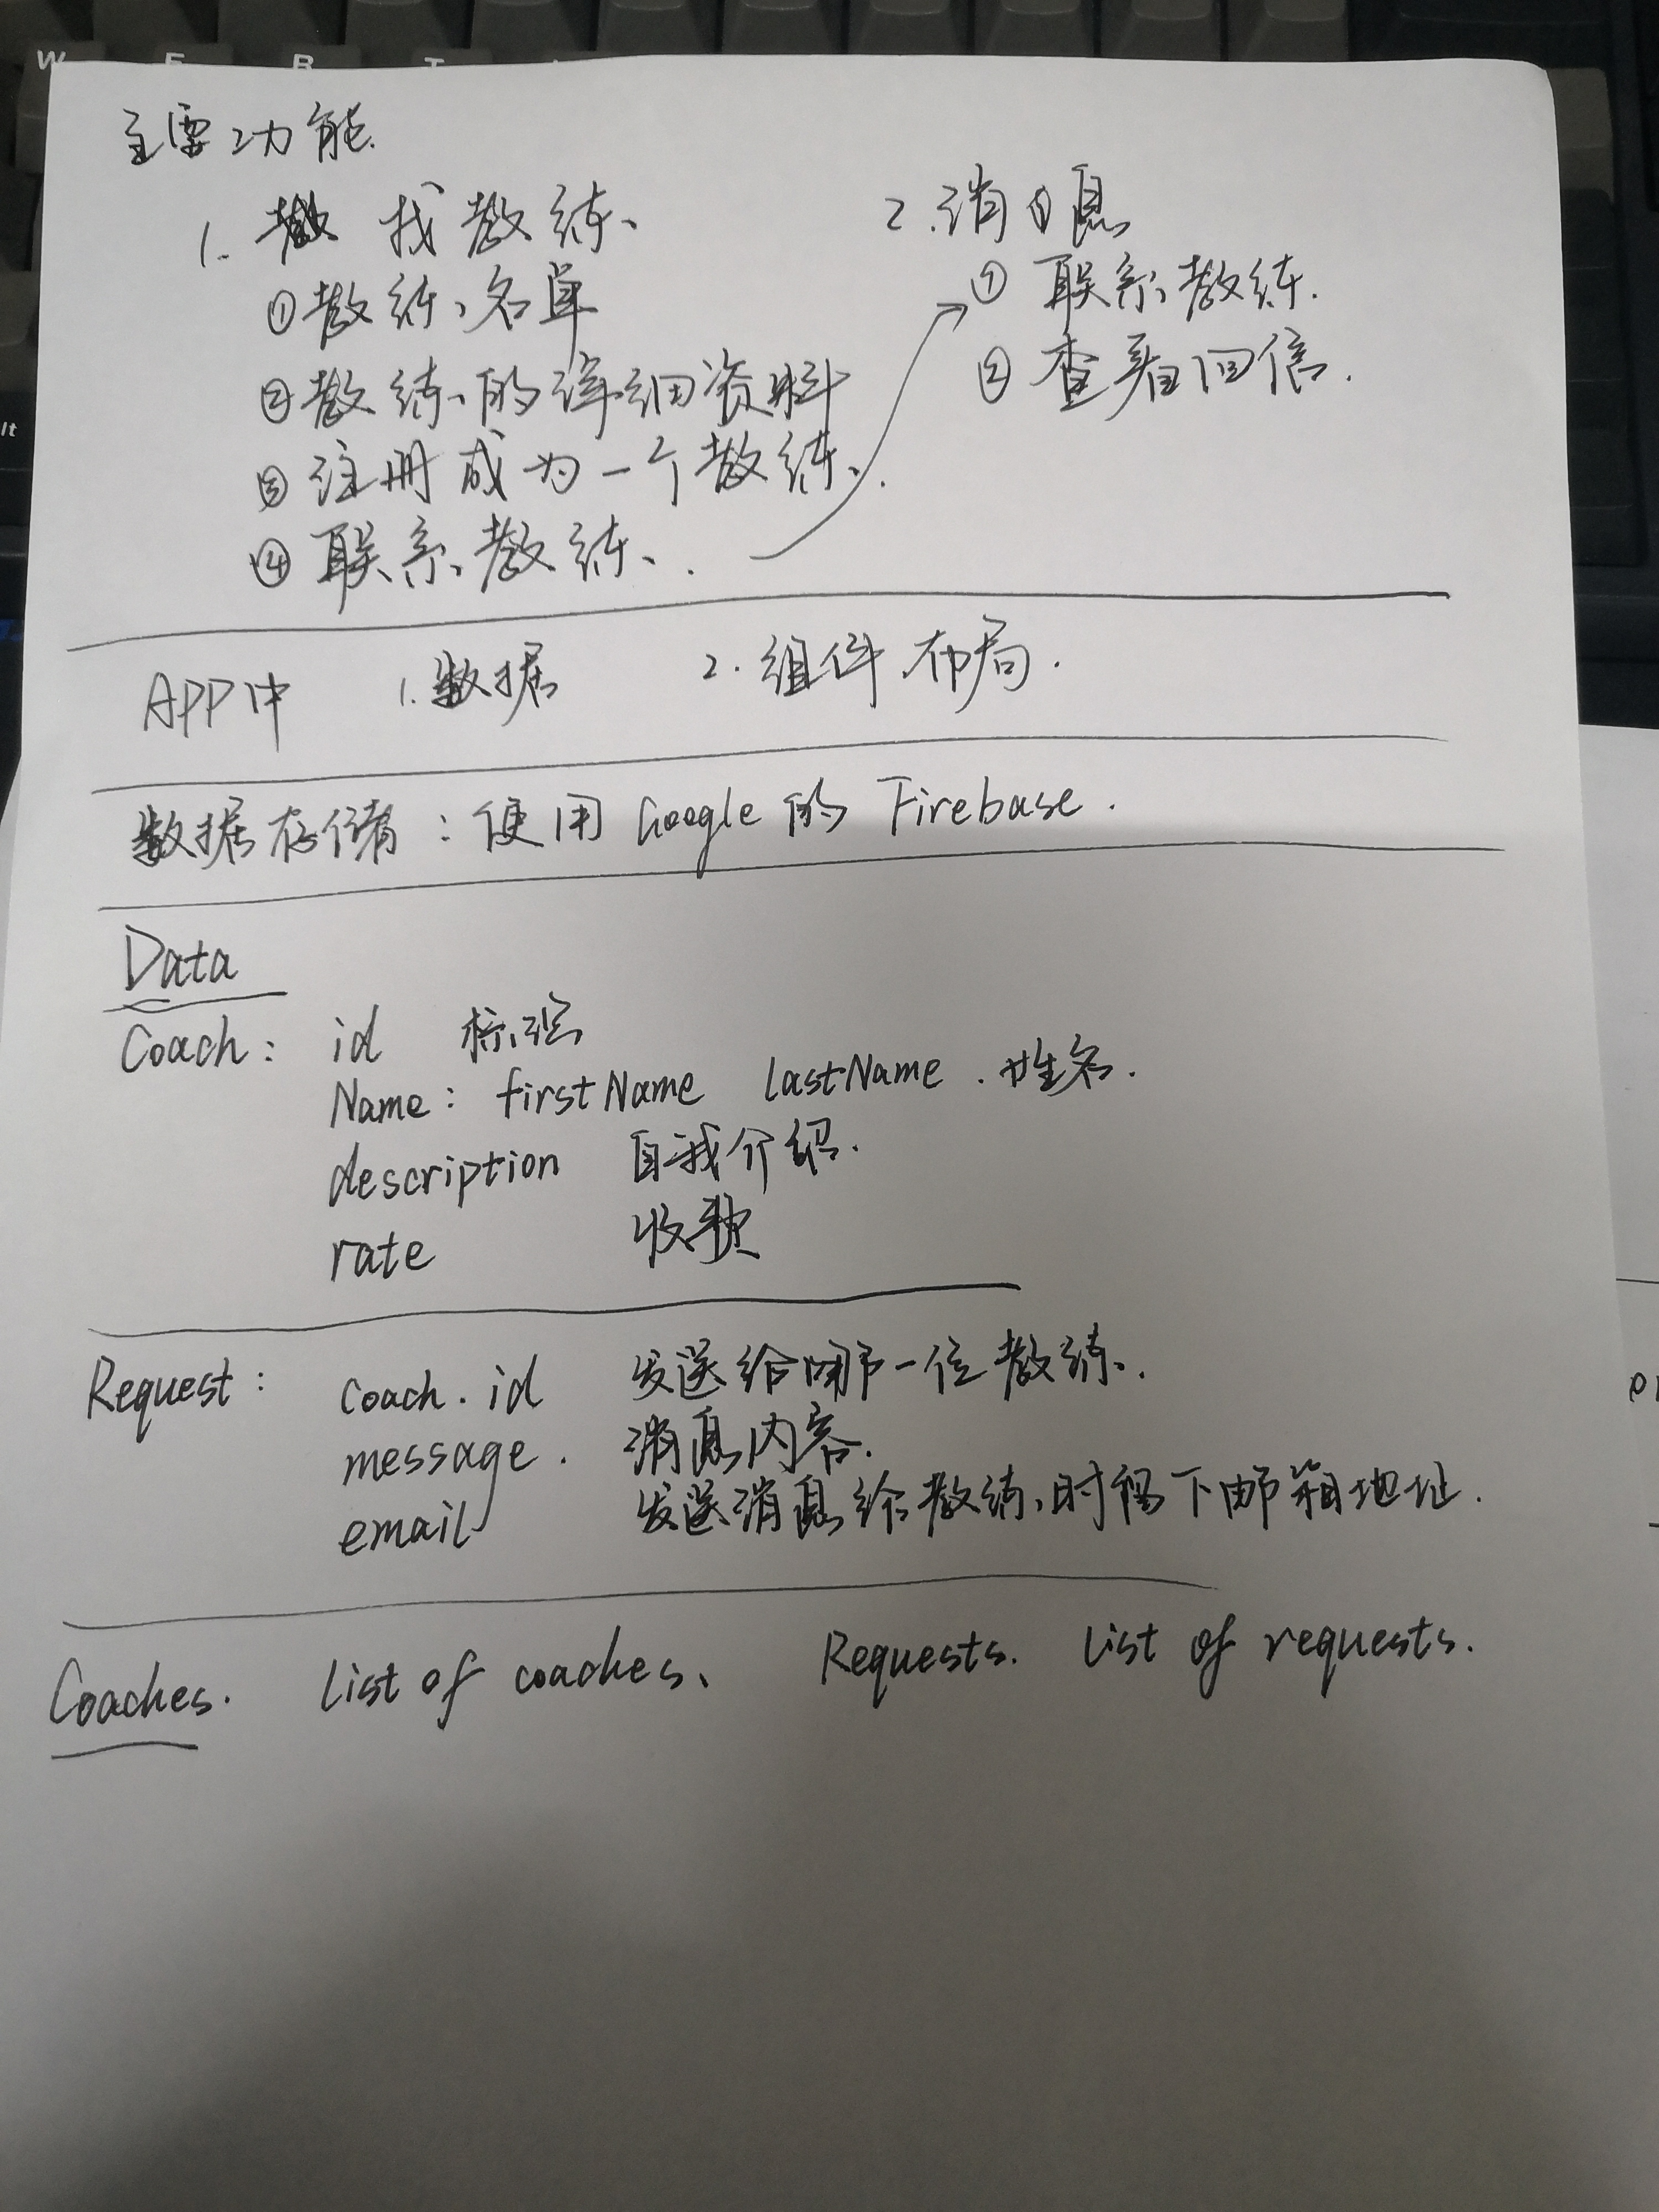 W E R T
主要功能.
1. 找教练、
① 教练名单
② 教练的详细资料
③ 注册成为一个教练.
④ 联系教练.
2. 消息
① 联系教练.
② 查看回信.
APP中 1. 数据 2. 组件布局.
数据存储：使用 Google 的 Firebase.
Data
Coach: id 标识
Name: firstName lastName. 姓名.
description 自我介绍.
rate 收款
Request: coach.id 发送给哪一位教练.
message. 消息内容.
email 发送消息给教练时留下邮箱地址.
Coaches. list of coaches、 Requests. List of requests.